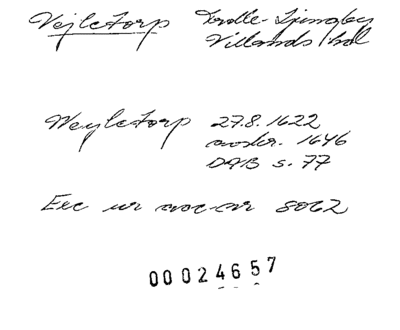 Vejletorp Trolle-Ljungby
Villands hd
Weyletorp 27.8.1622
avskr. 1646
DAB s. 77
Exc ur 8062
00024657